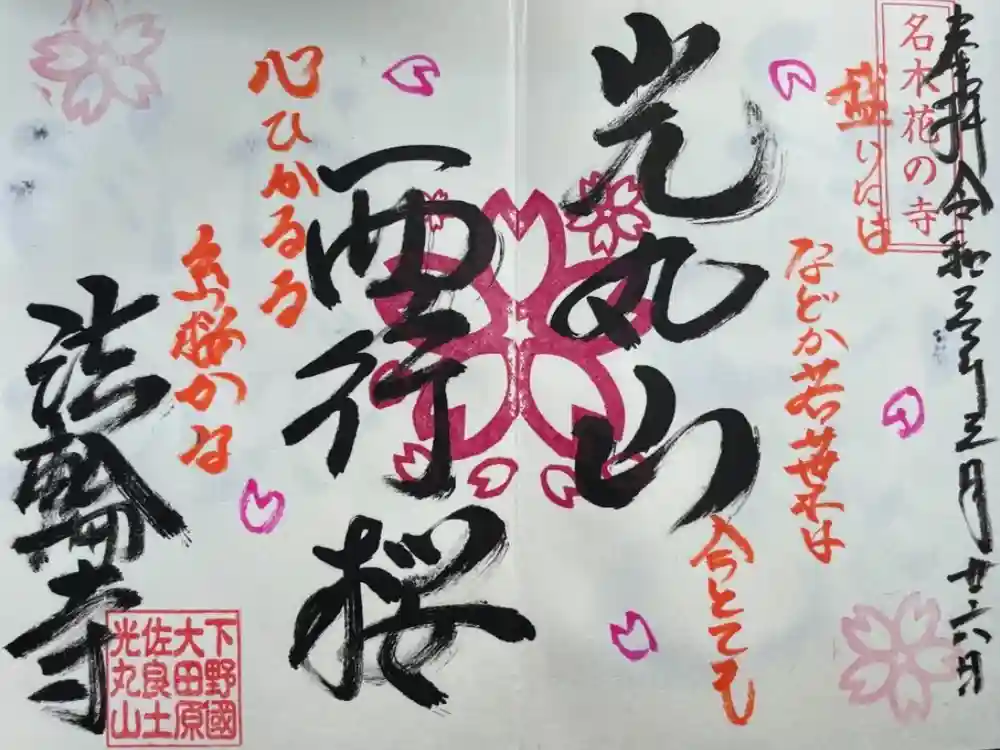 奉拝 令和年三月廿六日
名木花の寺
盛りには
などか若葉は
今とても
光丸山
西行桜
心ひかるる
糸桜かな
法輪寺
下野國
大田原
佐良土
光丸山